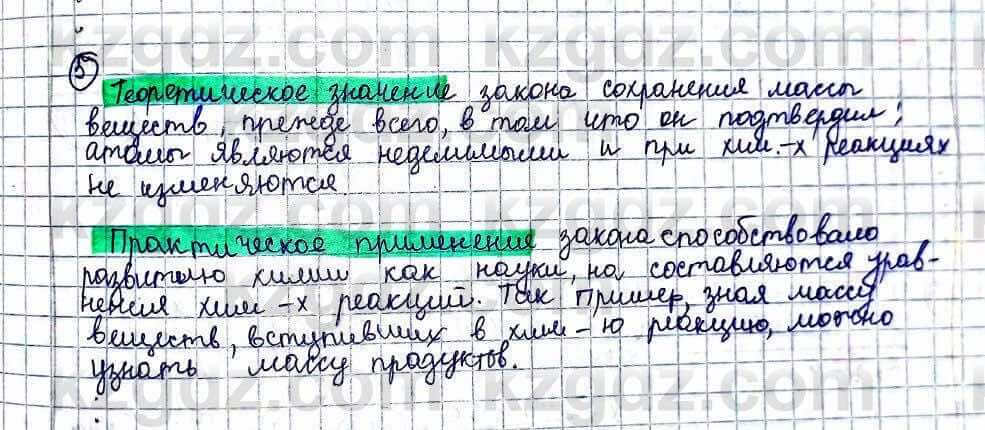 5
Теоретическое значение закона сохранения массы
веществ, прежде всего, в том что он подтвердил;
атомы являются неделимыми и при хим.-х реакциях
не изменяются
Практическое применение закона способствовало
развитию химии как науки, на составляются урав-
нения хим-х реакций. Так пример, зная массу
веществ, вступивших в хим-ю реакцию, можно
узнать массу продуктов.
kzgdz.com